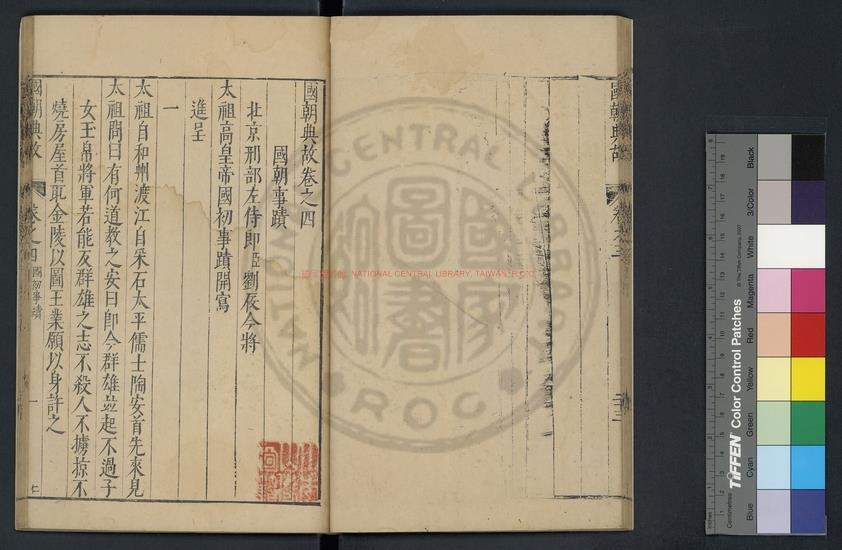 國朝典故
國朝典故卷之四
國朝事蹟
北京刑部左侍郎臣劉辰今將
太祖高皇帝國初事蹟開寫
進呈
一
太祖自和州渡江自采石太平儒士陶安首先來見
太祖問曰有何道教之安曰卽今群雄並起不過子
女玉帛將軍若能反群雄之志不殺人不擄掠不
燒房屋首取金陵以圖王業願以身許之
國朝典故 卷之四 國初事蹟 一
NATIONAL CENTRAL LIBRARY, TAIWAN, R.O.C.
NATIONAL CENTRAL LIBRARY
ROC
國家圖書館
TIFFEN Color Control Patches
© The Tiffen Company, 2007
Centimetres
Inches
Blue
Cyan
Green
Yellow
Red
Magenta
White
3/Color
Black